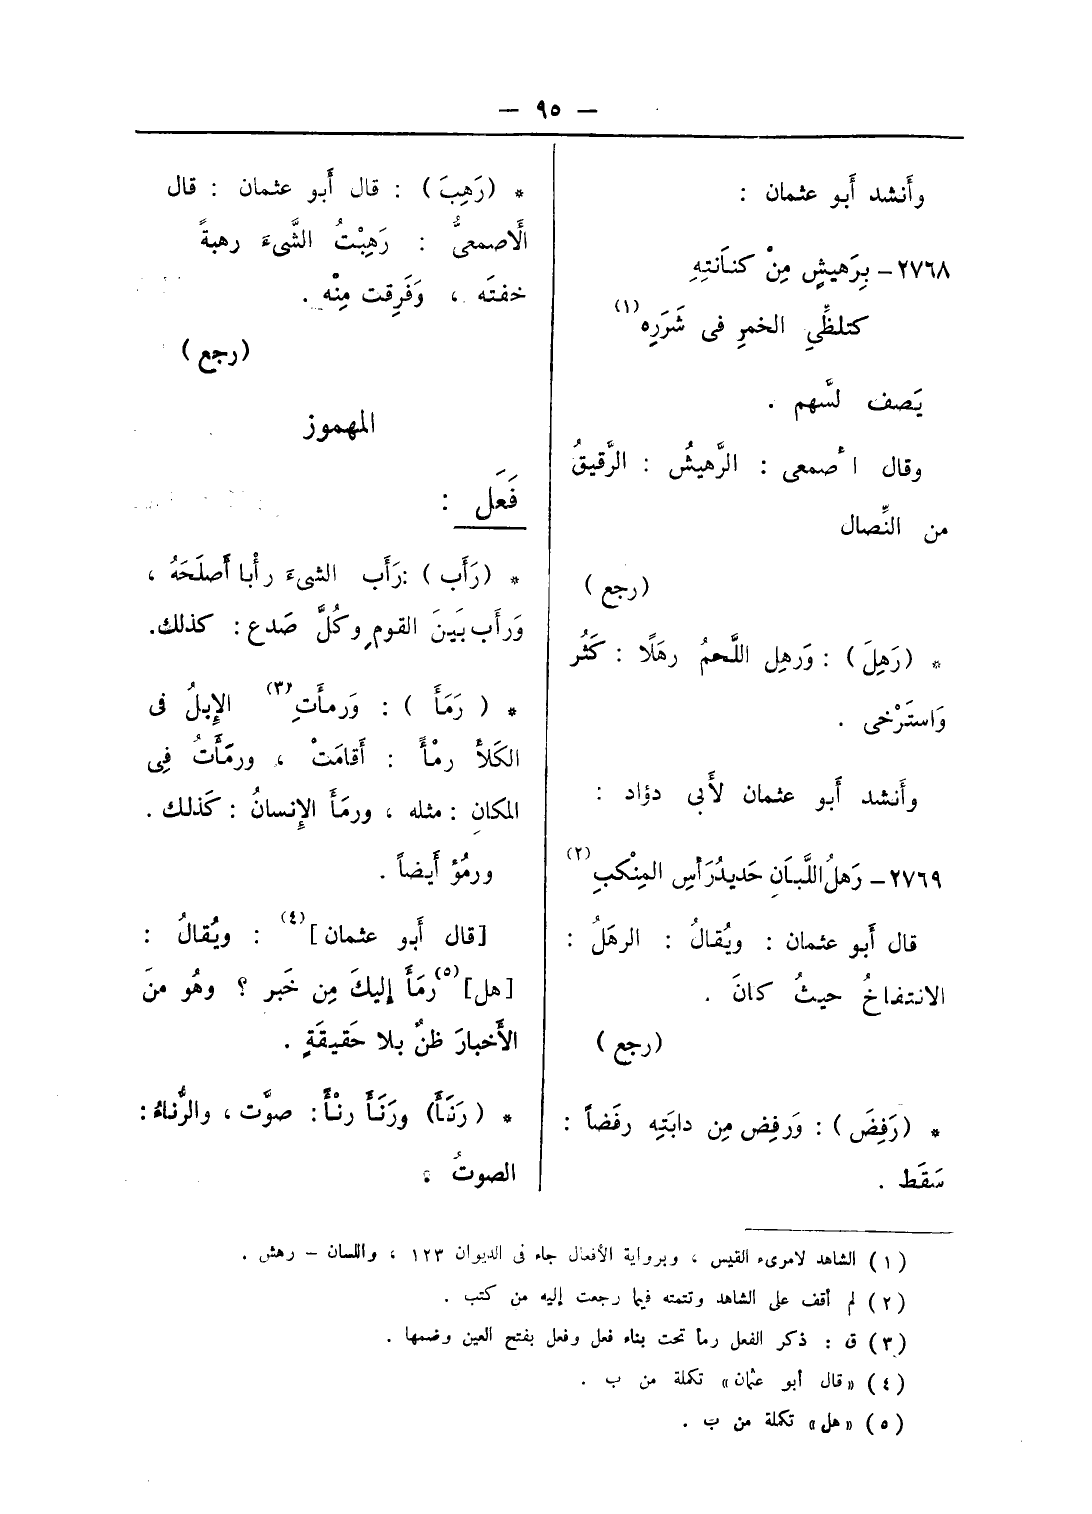 — ٩٥ —
وأَنشد أَبو عثمان :
٢٧٦٨ – بِرَهيشٍ مِنْ كنَانتِهِ
كتلظِّى الخمرِ فى شَرَرِه (١)
يَصف لسَّهم .
وقال ا أصمعى : الرَّهيشُ : الرَّقيقُ
من النِّصال
(رجع )
* (رَهِلَ ) : وَرهِل اللَّحمُ رهَلًا : كَثُر
وَاستَرْخى .
وأَنشد أَبو عثمان لأَبى دؤاد :
٢٧٦٩ – رَهلُ اللَّبَانِ حَديدُ رَأسِ المِنْكبِ (٢)
قال أَبو عثمان : ويُقالُ : الرهَلُ :
الانتفاخُ حيثُ كانَ .
(رجع )
* (رَفِضَ ) : وَرفِض مِن دابَتِه رفَضاً :
سَقَط .
* (رَهِبَ ) : قال أَبو عثمان : قال
الَاصمعىُّ : رَهِبْتُ الشَّىءَ رهبةً
خفتَه ، وَفَرِقت مِنْه .
(رجع )
المهموز
فَعَل :
* (رَأَب ) : رَأَب الشىءَ رأْبا أَصلَحَهُ ،
وَرأَب بَينَ القومِ وكُلَّ صَدع : كذلك .
* ( رَمَأَ ) : وَرمأَتِ (٣) الإِبلُ فى
الكَلأ رمْأً : أَقامَتْ ، ورمَّأَتُ فِى
المكانِ : مثله ، ورمَأَ الإِنسانُ : كَذلك .
ورمُؤ أَيضاً .
[قال أَبو عثمان] (٤) : ويُقالُ :
[هل] (٥) رمَأَ إِليكَ مِن خَبر ؟ وهُو منَ
الأَخبارَ ظنٌ بلا حَقيقَةٍ .
* (رَنَأَ) ورَنَأَ رنْأً : صوَّت ، والرُّناءُ :
الصوتُ .
(١) الشاهد لامرىء القيس ، وبرواية الأفعال جاء فى الديوان ١٢٣ ، واللسان – رهش .
(٢) لم أقف على الشاهد وتتمته فيما رجعت إليه من كتب .
(٣) ق : ذكر الفعل رمأ تحت بناء فعل وفعل بفتح العين وضمها .
(٤) «قال أبو عثمان» تكملة من ب .
(٥) «هل» تكملة من ب .